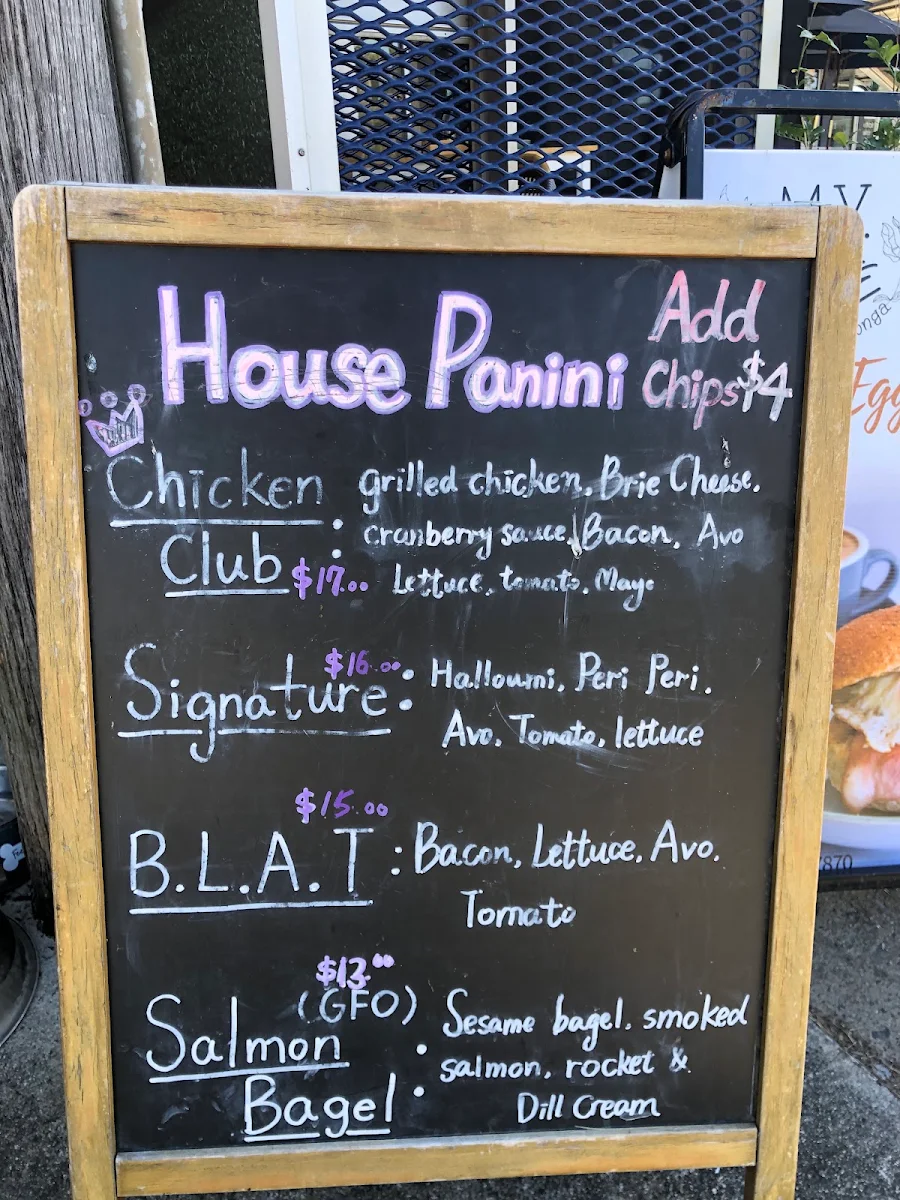 House Panini
Add
Chips $4
Chicken
Club $17.00
:
grilled chicken, Brie Cheese,
cranberry sauce, Bacon, Avo
Lettuce, tomato, Mayo
$16.00
Signature :
Halloumi, Peri Peri,
Avo, Tomato, lettuce
$15.00
B.L.A.T : Bacon, Lettuce, Avo,
Tomato
$13.00
(GFO)
Salmon
Bagel :
Sesame bagel, smoked
salmon, rocket &
Dill Cream
M.Y.
onga
Egg
7870